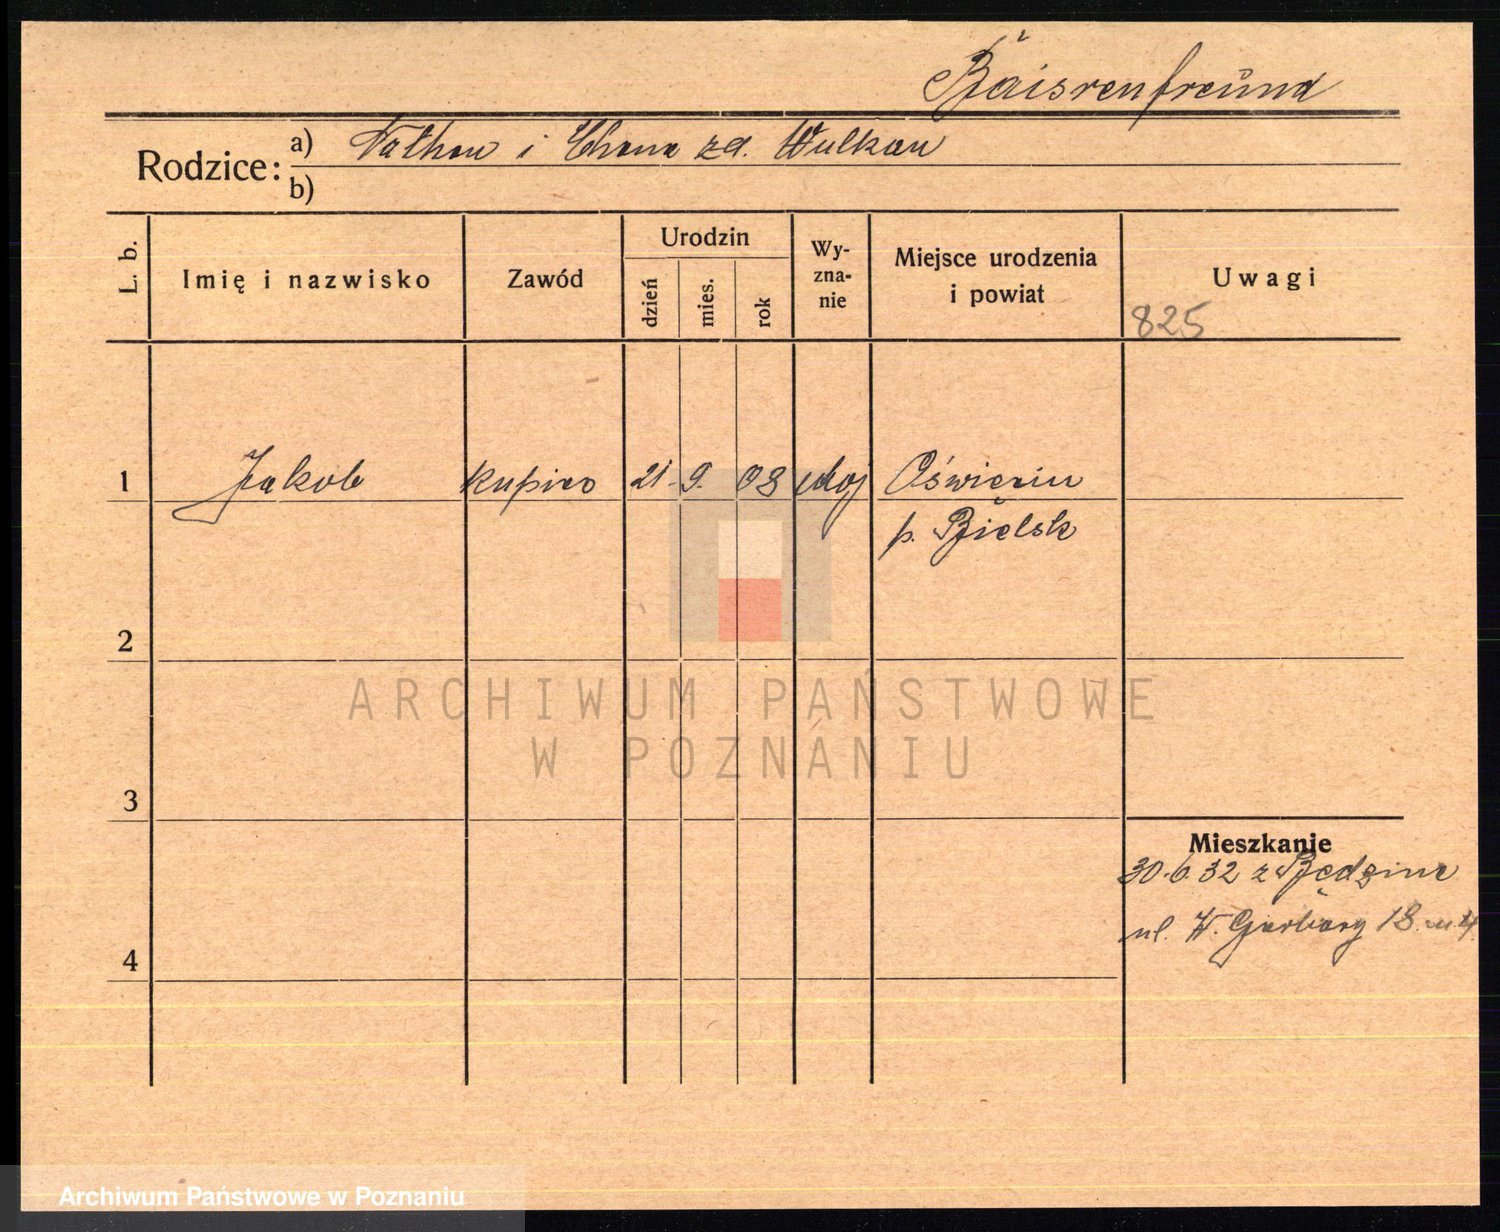 Baisrenfreund
Rodzice: a) Nathan i Chana zd. Wulkan
b)
L. b.
Imię i nazwisko
Zawód
Urodzin
dzień
mies.
rok
Wy-
zna-
nie
Miejsce urodzenia
i powiat
Uwagi
825
1 Jakob kupiec 21. 9. 08 moj Oświęcim
p. Bielsk
2
ARCHIWUM PAŃSTWOWE
W POZNANIU
3
Mieszkanie
30.6.32 z Będzina
4
ul. W. Garbary 18 m 4
Archiwum Państwowe w Poznaniu